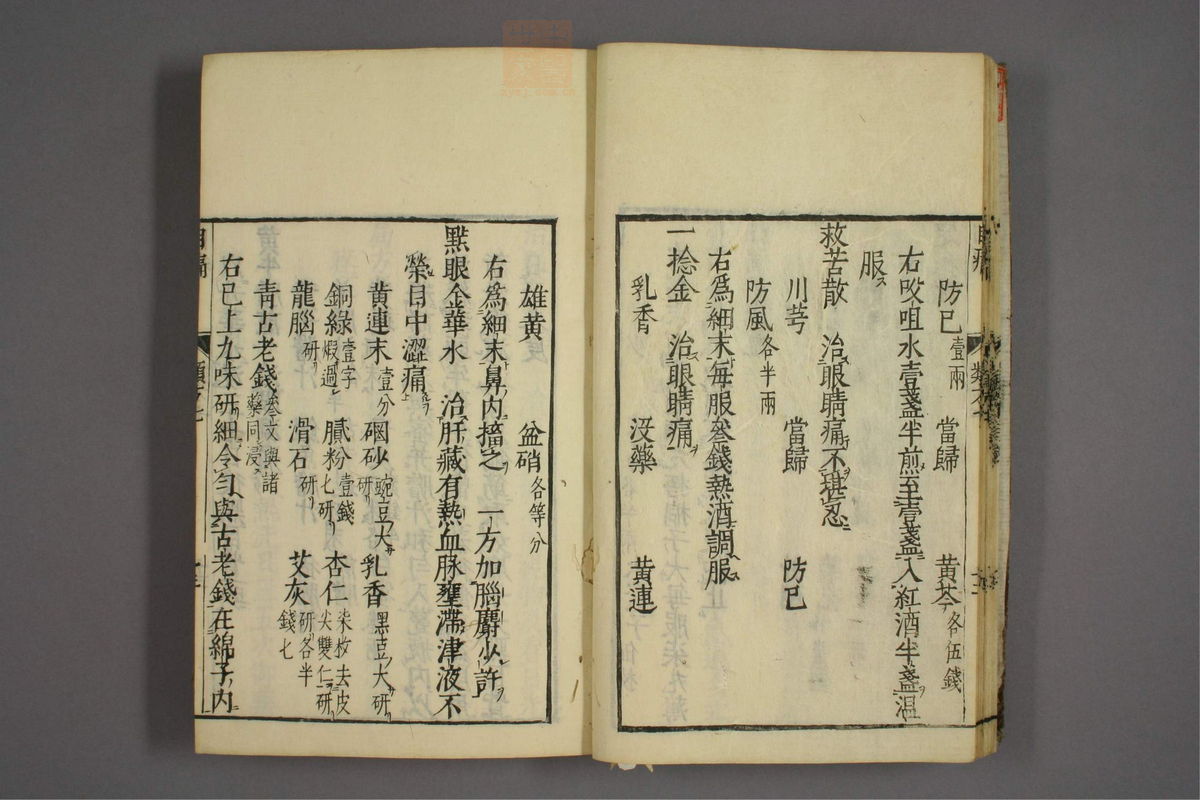 防已壹兩　當歸　黄芩各伍錢
右㕮咀水壹盞半煎至壹盞入紅酒半盞温
服
救苦散　治眼睛痛不堪忍
川芎　當歸　防已
防風各半兩
右爲細末每服叄錢熱酒調服
一捻金　治眼睛痛
乳香　没藥　黄連
雄黄　盆硝各等分
右爲細末鼻内搐之　一方加腦麝少許
點眼金華水　治肝藏有熱血脉壅滯津液不
榮目中澀痛
黄連末壹分　硇砂豌豆大研　乳香黑豆大研
銅緑壹字煆過　膩粉壹錢七研　杏仁柒枚去皮尖雙仁研
龍腦研　滑石研　艾灰研各半錢七
青古老錢叄文與諸藥同浸
右已上九味研細令匀與古老錢在綿子内
目痛